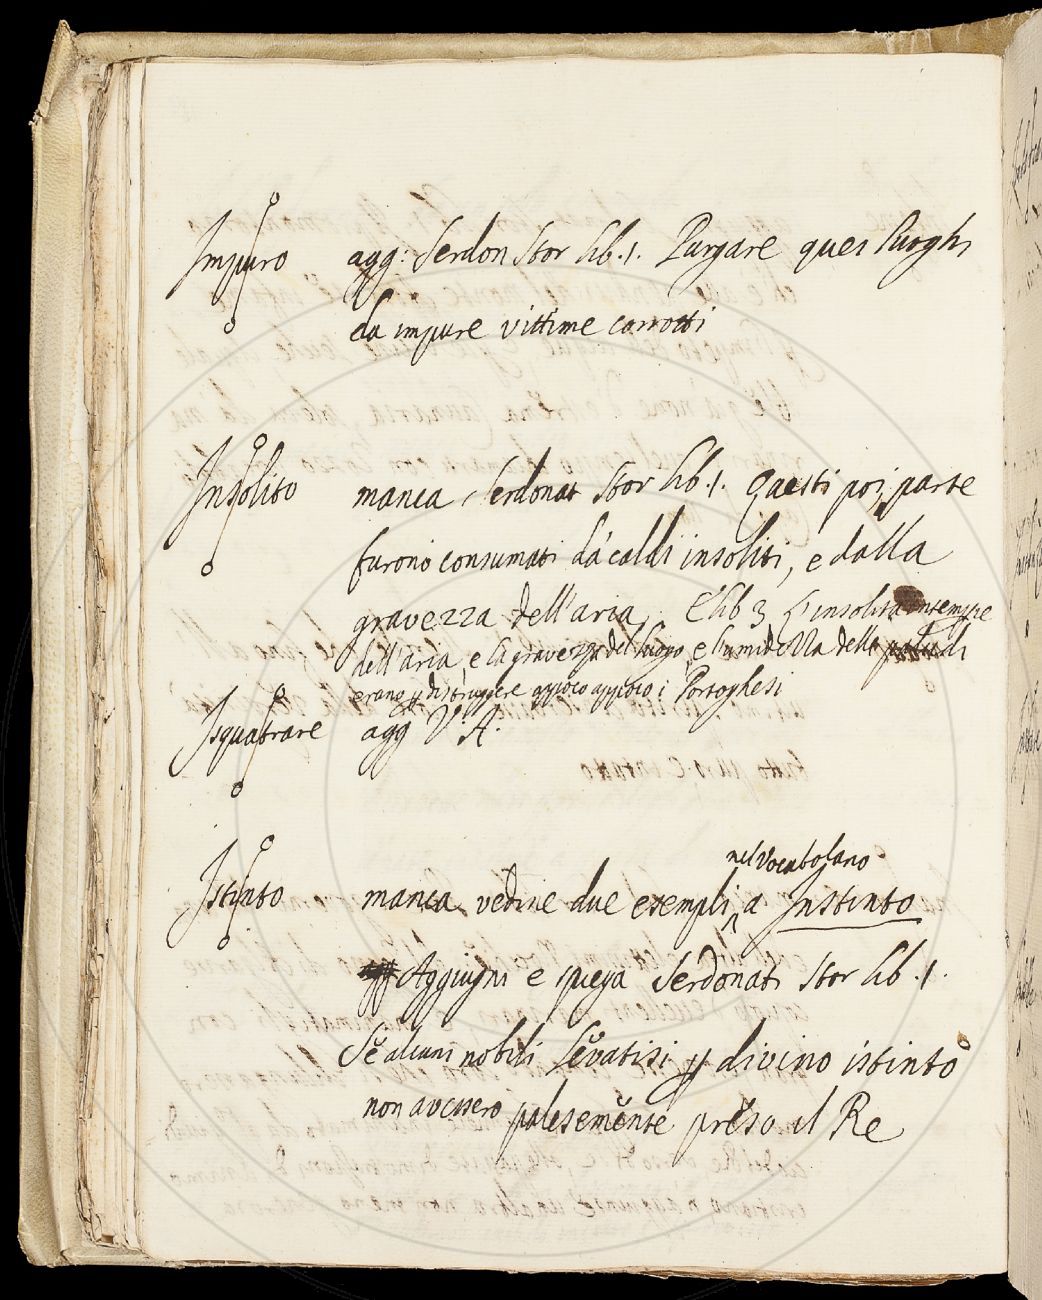 Impuro agg: Serdon Stor lib. 1. Purgare quei luoghi
da impure vittime corrotti
Insolito manca, Serdonat Stor lib. 1. Questi poi parte
furono consumati da' caldi insoliti, e dalla
gravezza dell'aria, E lib 3 L'insolita intemperie
dell'aria, e la gravezza del luogo, e l'umidezza delle paludi
erano p distruggere appoco appoco i Portoghesi
Isquatrare agg V. A.
nel Vocabolario
Istinto manca vedine due esempli a Instinto
Aggiugni e spiega Serdonati Stor lib. 1.
Se alcuni nobili levatisi p divino istinto
non avessero palesemente preso il Re